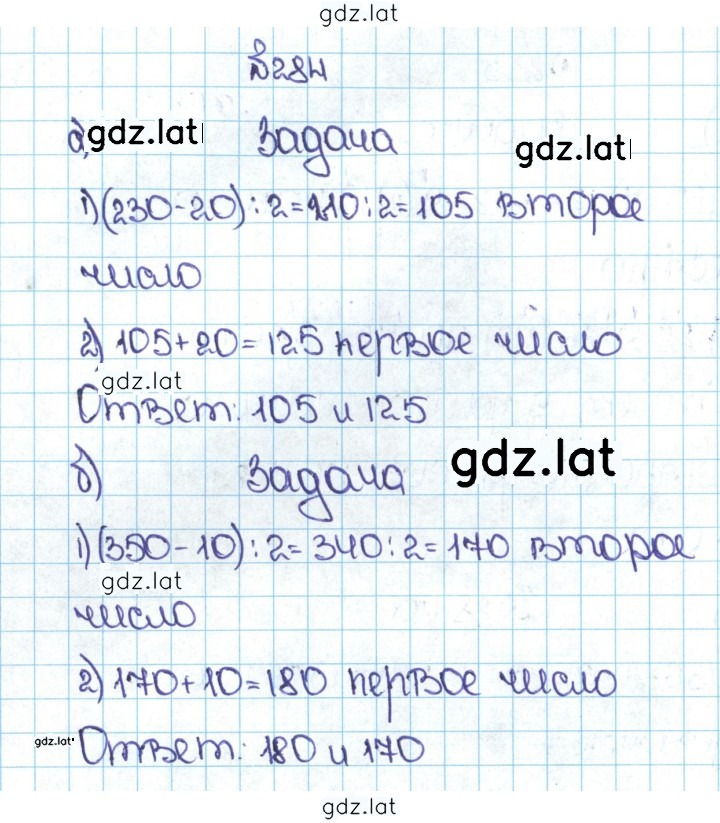 gdz.lat
№284
а) gdz.lat Задача gdz.lat
1) (230-20):2=210:2=105 второе
число
2) 105+20=125 первое число
gdz.lat
Ответ: 105 и 125
б) Задача gdz.lat
1) (350-10):2=340:2=170 второе
gdz.lat
число
2) 170+10=180 первое число
gdz.lat Ответ: 180 и 170
gdz.lat